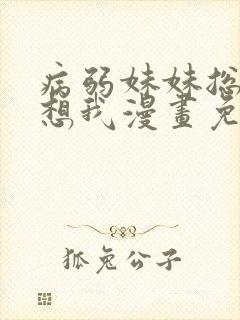 病弱妹妹总
想我漫畫免
狐兔公子